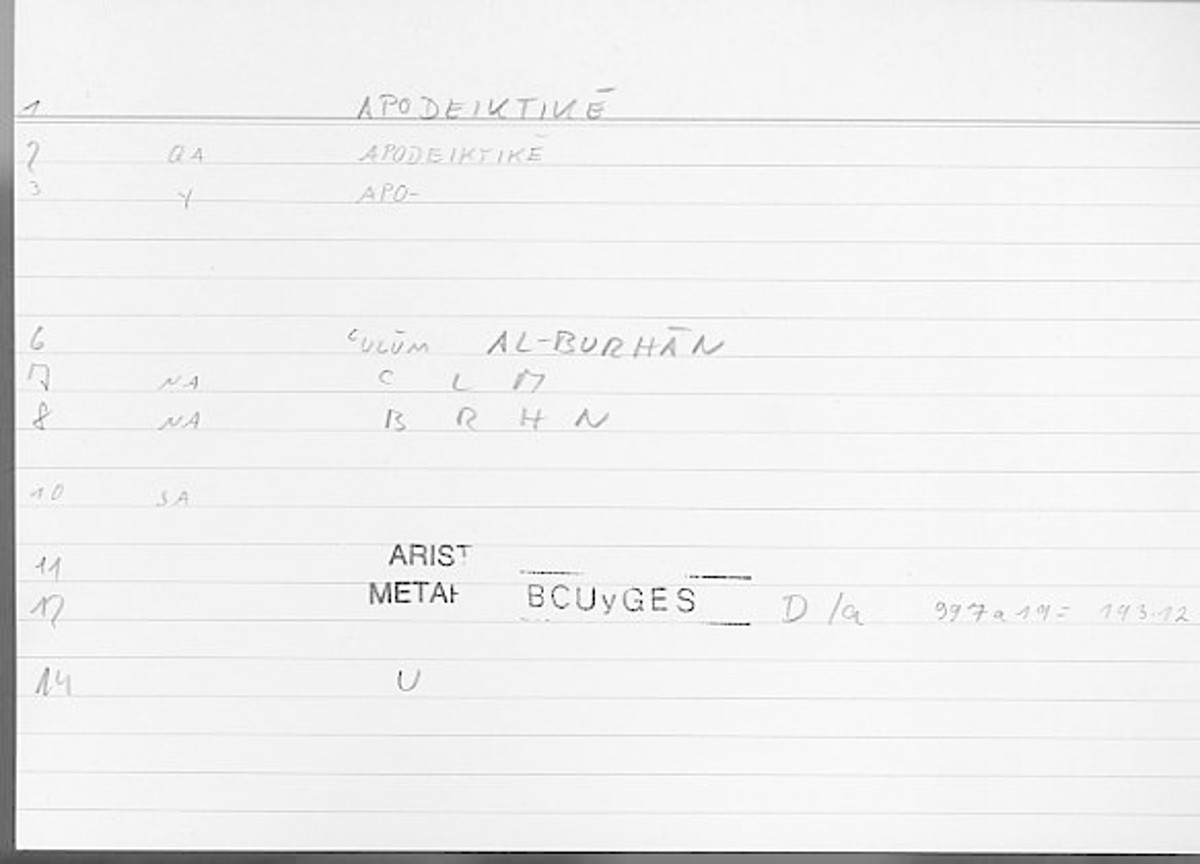 1 APODEIKTIKĒ
2 QA APODEIKTIKĒ
3 Y APO-
6 ʿULŪM AL-BURHĀN
7 NA C L M
8 NA B R H N
10 SA
11 ARIST
12 METAH BCUyGES D /a 997a19= 193.12
14 U